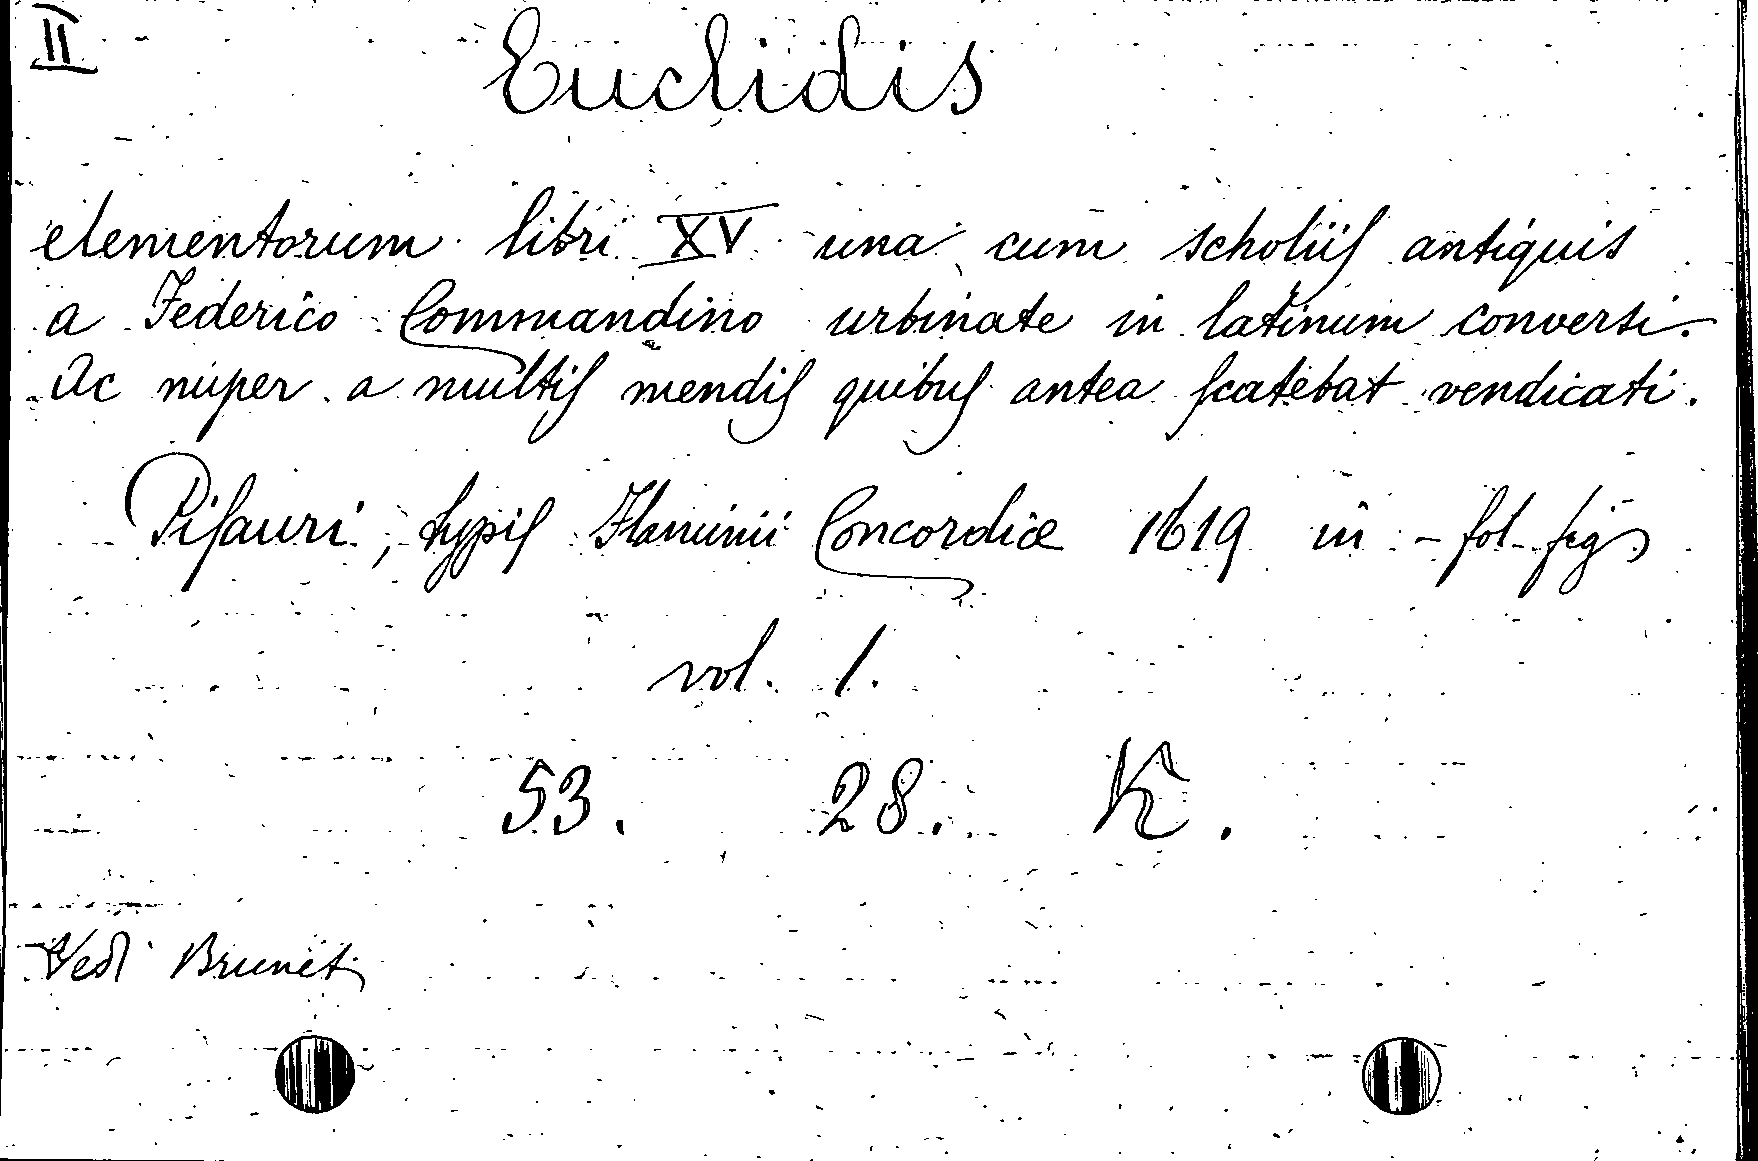 II
Euclidis
elementorum libri XV una cum scholiis antiquis
a Federico Commandino urbinate in latinum conversi.
Ac nuper a multis mendis quibus antea scatebat vendicati.
Pisauri, typis Flaminii Concordiæ 1619 in-fol-figs
vol. 1.
53. 28. K.
Vedi Brunet